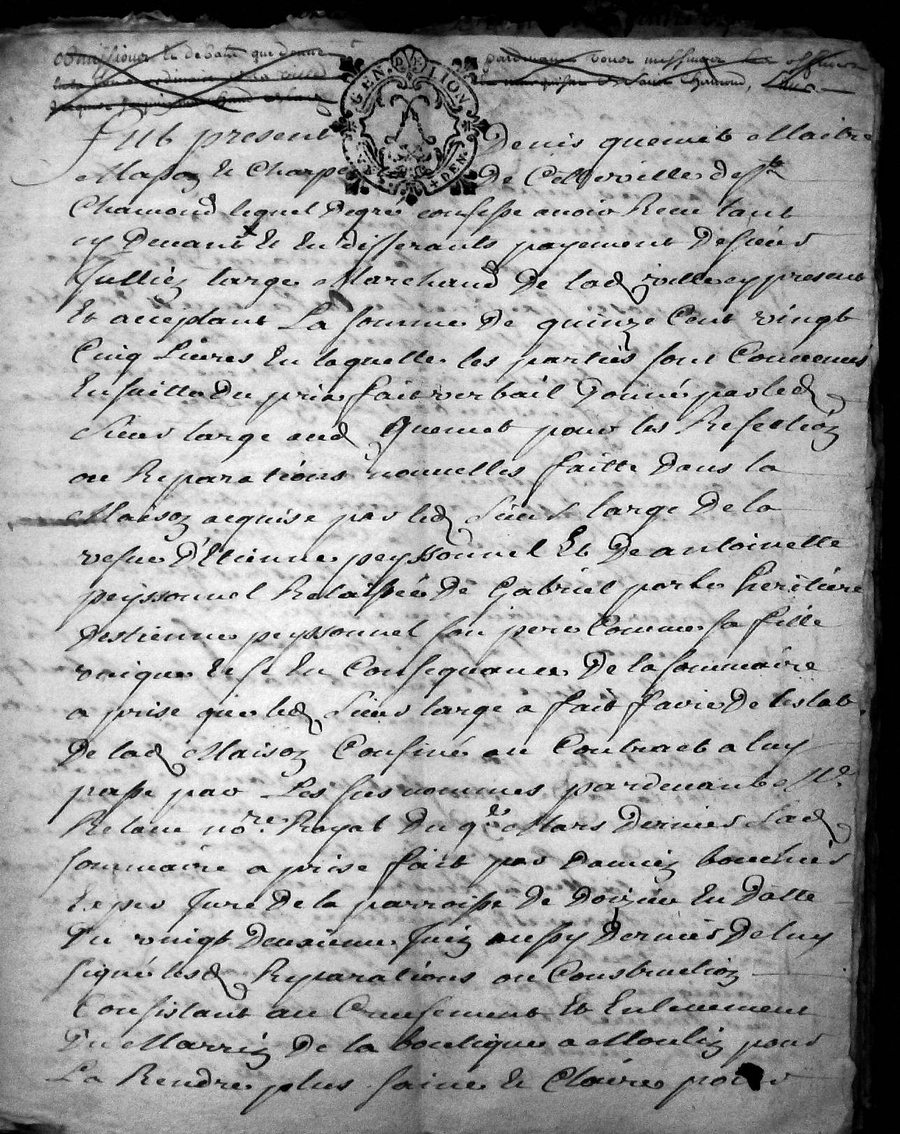 GEN. DE LION
DEN.
Fut present Denis quemet Maitre
Masson & Charp de Cette ville de st
Chamond lequel Degré confesse avoir Receu tant
cy Devant Et En differants payement De sieur
Jullien large Marchand De lad ville cy present
Et acceptant La somme De quinze Cent vingt
Cinq Livres En laquelle les parties sont Convenues
Ensuitte Du prix fait verbail Donné par led
Sieur large aud quemet pour les Refection
ou Reparations nouvelles faitte Dans la
Maison acquise par led Sieur large De la
vefve D'Etienne peyssonnel Et De antoinette
peyssonnel Relaissée De Gabriel heritiere
Destienne peyssonnel son pere Comme sa fille
unique Et En Consequance De la sommaire
a prise que led Sieur large a fait faire De lestat
De lad Maison Confiné au Contract a luy
passé par Les sus nommés pardevant Me
no.re Royal Du Mars Dernier Lad
sommaire a prise fait par Damien
Expert Juré De la parroisse De Doizieu En Datte
Du vingt Deuxieme Juin aussy Dernier De luy
signé lesd Reparations ou Construction
Consistant au Creusement Et Enlevement
Du Marrin De la boutique a Moulin pour
La Rendre plus saine & Claire pour